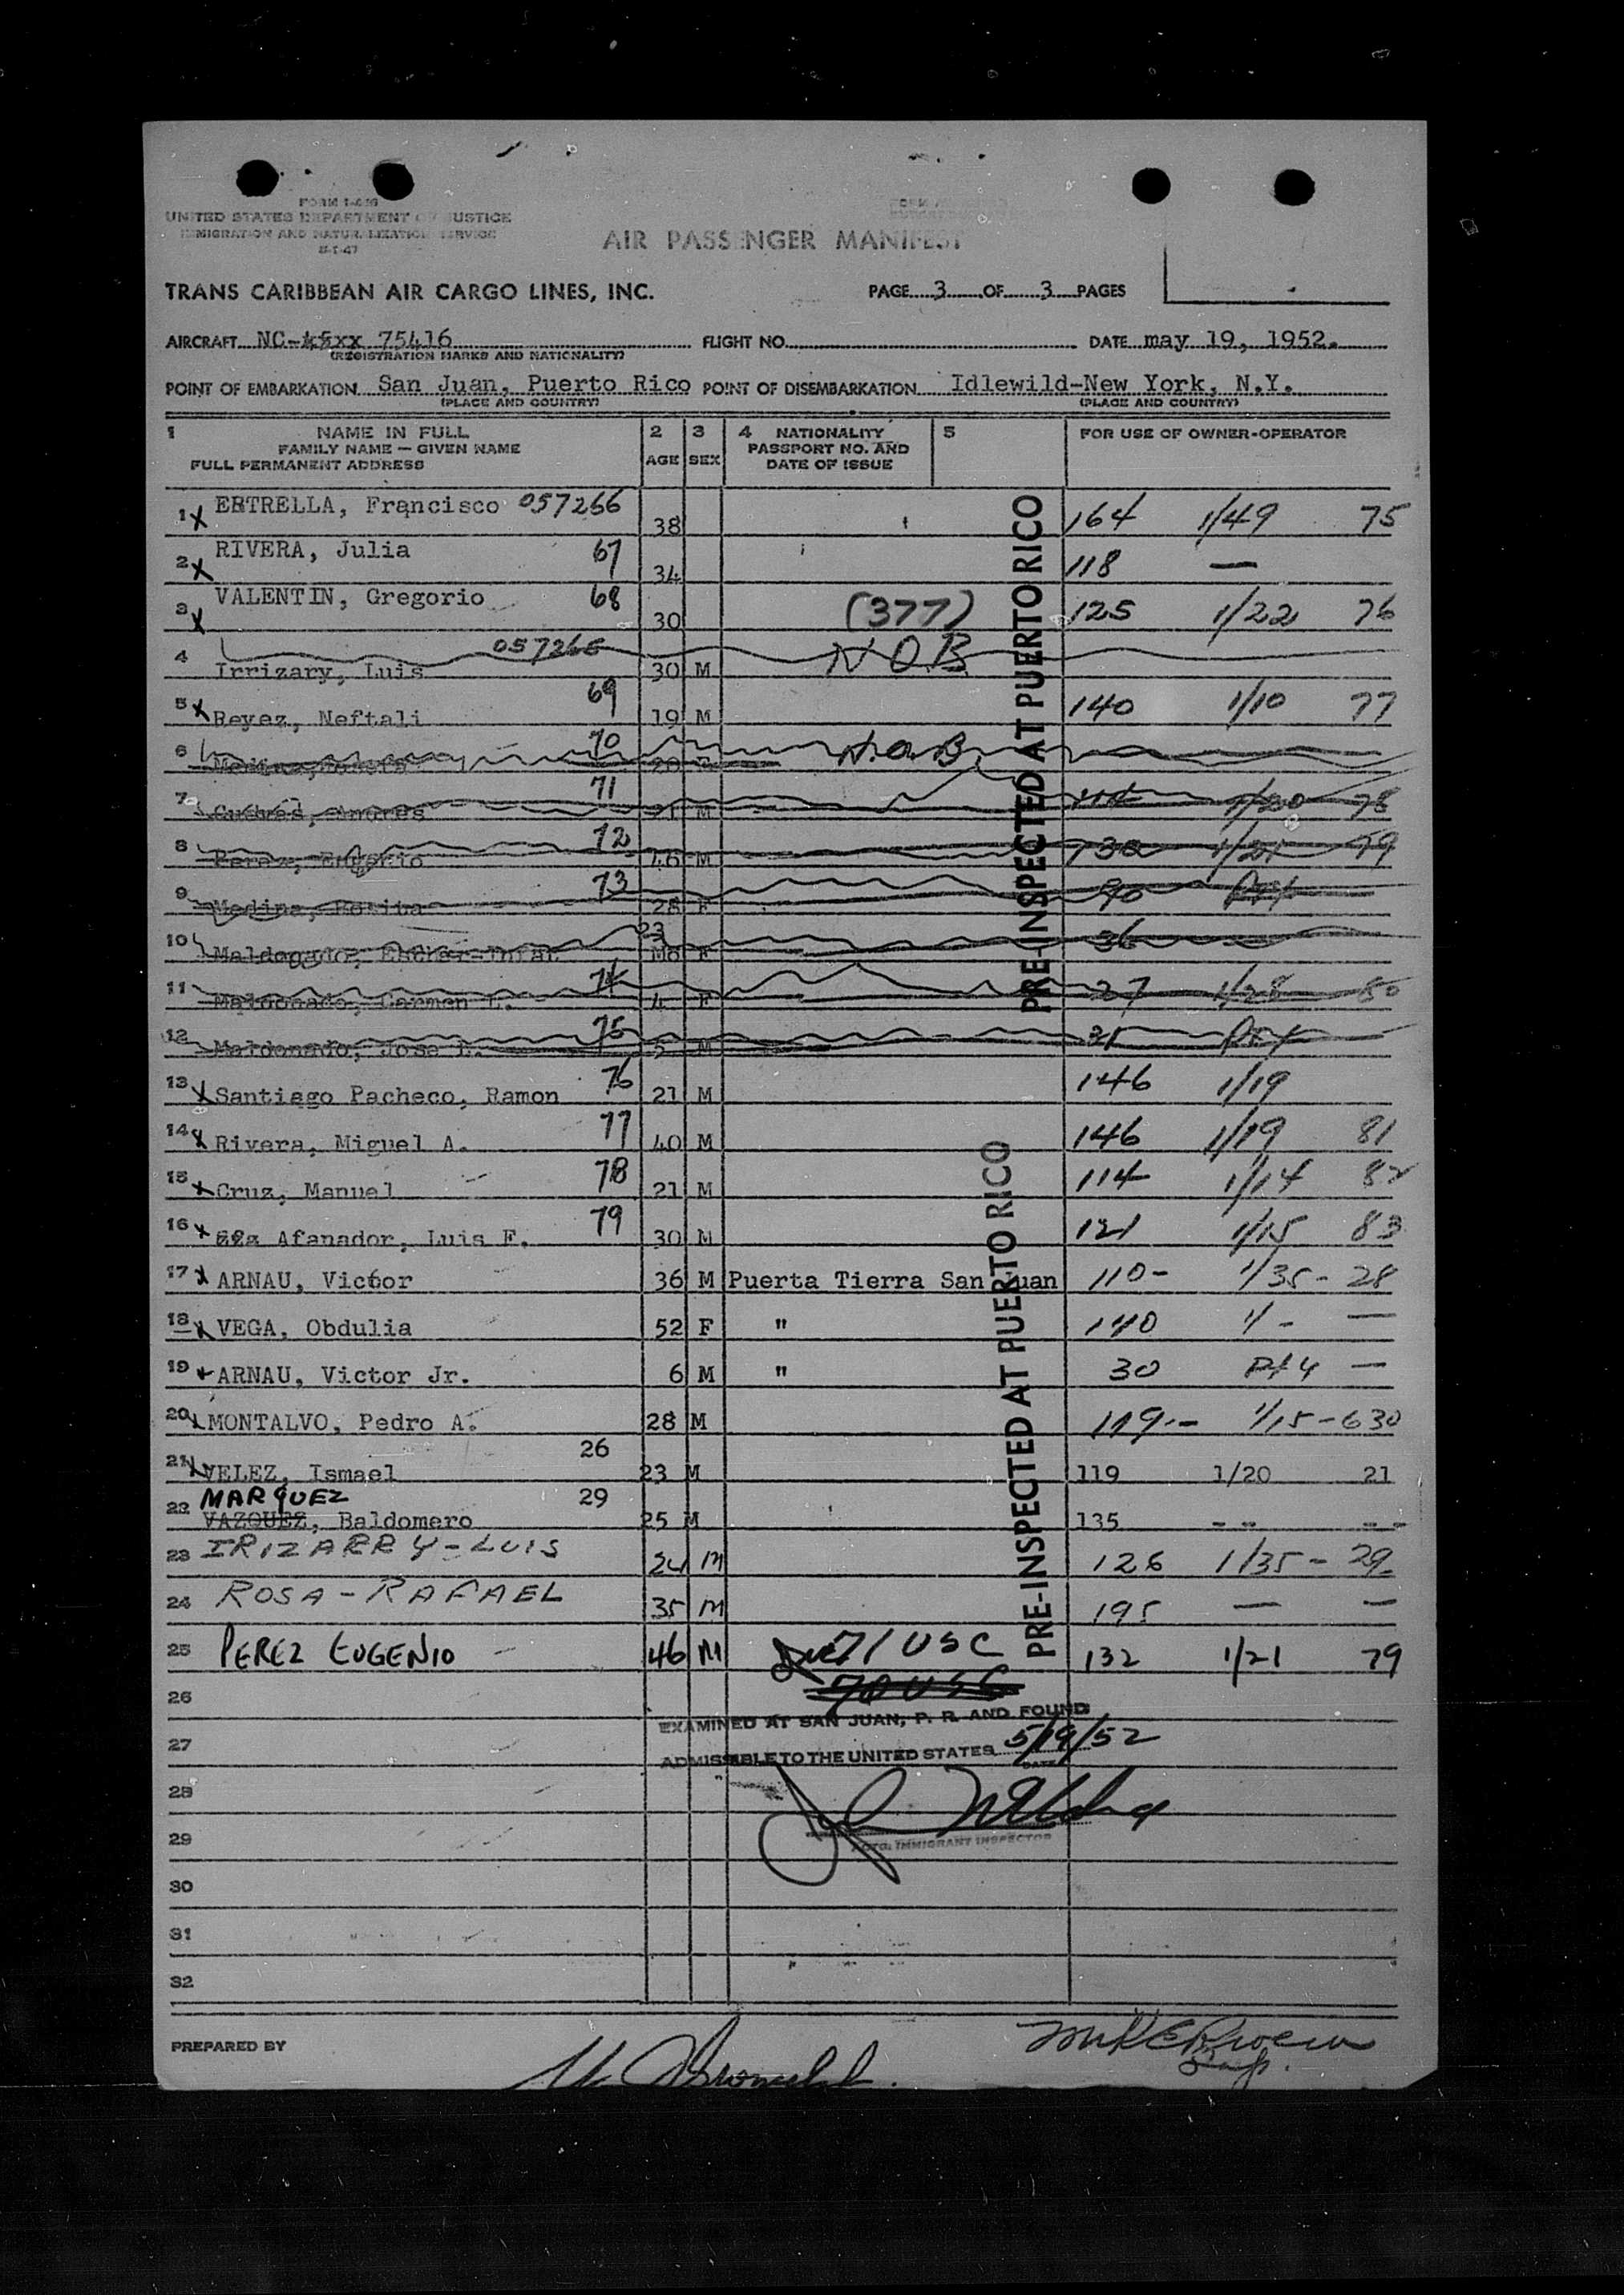 FORM I-416
UNITED STATES DEPARTMENT OF JUSTICE
IMMIGRATION AND NATURALIZATION SERVICE
AIR PASSENGER MANIFEST
TRANS CARIBBEAN AIR CARGO LINES, INC. PAGE 3 OF 3 PAGES
AIRCRAFT NC- 75416 FLIGHT NO. DATE may 19, 1952.
(REGISTRATION MARKS AND NATIONALITY)
POINT OF EMBARKATION San Juan, Puerto Rico POINT OF DISEMBARKATION Idlewild-New York, N.Y.
(PLACE AND COUNTRY) (PLACE AND COUNTRY)
1 NAME IN FULL 2 3 4 NATIONALITY 5 FOR USE OF OWNER-OPERATOR
FAMILY NAME — GIVEN NAME AGE SEX PASSPORT NO. AND
FULL PERMANENT ADDRESS DATE OF ISSUE
1 X ESTRELLA, Francisco 057266 38 164 1/49 75
2 X RIVERA, Julia 67 34 118 —
3 X VALENTIN, Gregorio 68 30 (377) 125 1/22 76
4 Irrizary, Luis 30 M N O B
5 X Reyez, Neftali 69 19 M 140 1/10 77
6 70 N.O.B.
7 71 21 M 1/20 78
8 Perez, Eugenio 72 46 M 132 1/21 79
9 Medina, 73 28 F 90
10 23 Mo F 36
11 Maldonado, Carmen L. 74 4 F 37 1/28 80
12 Maldonado, Jose L. 75 5 M
13 X Santiago Pacheco, Ramon 76 21 M 146 1/19
14 X Rivera, Miguel A. 77 40 M 146 1/19 81
15 X Cruz, Manuel 78 21 M 114 1/14 82
16 X Afanador, Luis F. 79 30 M 121 1/15 83
17 X ARNAU, Victor 36 M Puerta Tierra San Juan 110- 1/35- 28
18 X VEGA, Obdulia 52 F " 140 1/- —
19 X ARNAU, Victor Jr. 6 M " 30 —
20 MONTALVO, Pedro A. 28 M 119.- 1/15-630
21 X VELEZ, Ismael 26 23 M 119 1/20 21
MARQUEZ
22 VAZQUEZ, Baldomero 29 25 M 135 -- --
23 IRIZARRY-LUIS M 126 1/35- 29
24 ROSA-RAFAEL 35 M 195 — —
25 PEREZ EUGENIO 46 M 71 USC 132 1/21 79
70 USC
26
EXAMINED AT SAN JUAN, P. R. AND FOUND
27
ADMISSABLE TO THE UNITED STATES 5/19/52
DATE
28
29
IMMIGRANT INSPECTOR
30
31
32
PREPARED BY
PRE-INSPECTED AT PUERTO RICO
PRE-INSPECTED AT PUERTO RICO
PRE-INSPECTED AT PUERTO RICO